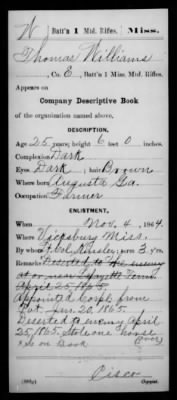 W | Batt'n 1 Mtd. Rifles, | Miss.
Thomas Williams
, Co. E, Batt'n 1 Miss. Mtd. Rifles.
Appears on
Company Descriptive Book
of the organization named above.
DESCRIPTION.
Age 25 years; height 6 feet 0 inches.
Complexion Dark
Eyes Dark ; hair Brown
Where born Augusta Ga.
Occupation Farmer
ENLISTMENT.
When Nov. 4 , 1864.
Where Vicksburg Miss.
By whom Col. ; term 3 y'rs.
Remarks Deserted to the enemy
at or near Lafayette Tenn
April 25, 1865.
Appointed Corpl from
Pvt Jan. 20, 1865.
Deserted to enemy April
25, 1865. Stole one horse
on Book (over)
Cisco
Copyist.